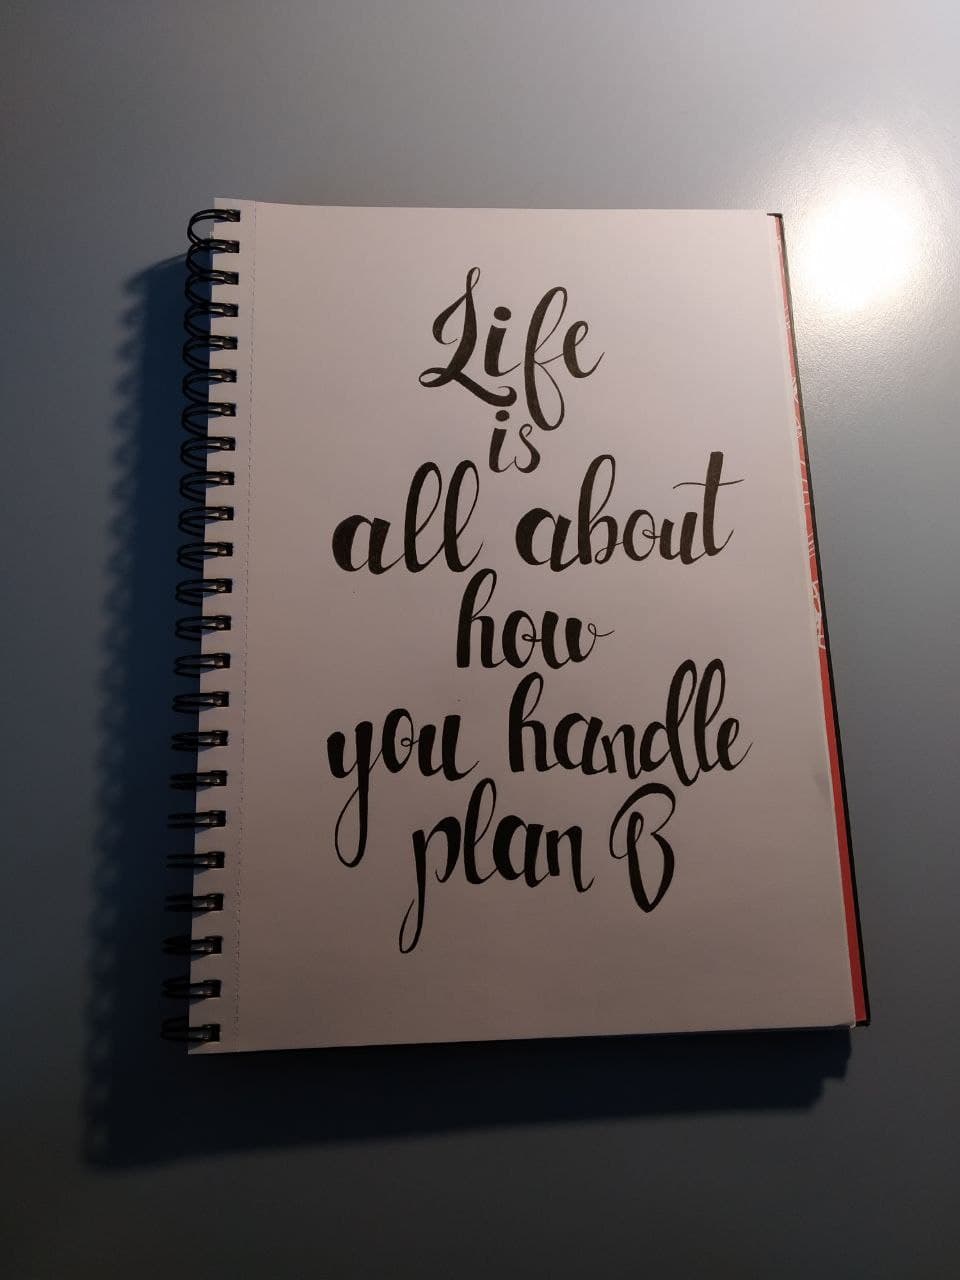 Life
is
all about
how
you handle
plan B